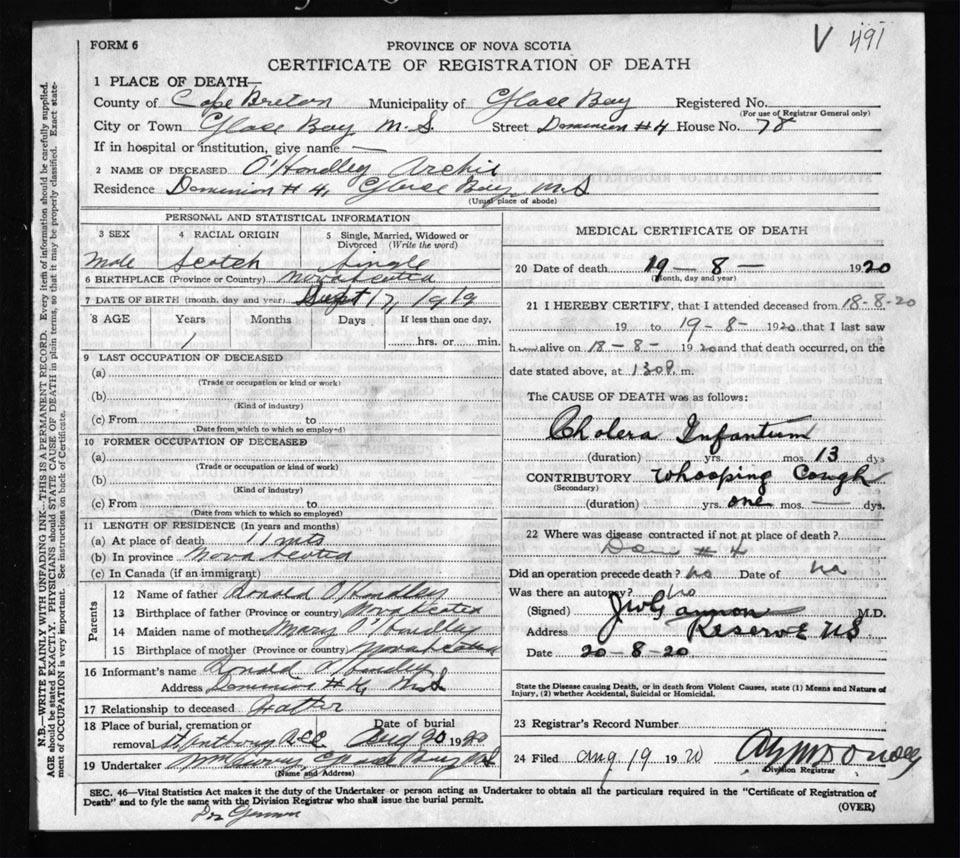 V 491
FORM 6
PROVINCE OF NOVA SCOTIA
CERTIFICATE OF REGISTRATION OF DEATH
1 PLACE OF DEATH—
County of Cape Breton Municipality of Glace Bay Registered No.
(For use of Registrar General only)
City or Town Glace Bay N.S. Street Dominion #4 House No. 78
If in hospital or institution, give name —
2 NAME OF DECEASED O'Handley Archie
Residence Dominion # 4, Glace Bay N.S
(Usual place of abode)
PERSONAL AND STATISTICAL INFORMATION
3 SEX 4 RACIAL ORIGIN 5 Single, Married, Widowed or Divorced (Write the word)
Male Scotch Single
6 BIRTHPLACE (Province or Country) Nova Scotia
7 DATE OF BIRTH (month, day and year) Sept 17, 1919
8 AGE Years Months Days If less than one day.
1 hrs. or min.
9 LAST OCCUPATION OF DECEASED
(a)
(Trade or occupation or kind or work)
(b)
(Kind of industry)
(c) From to
(Date from which to which so employed)
10 FORMER OCCUPATION OF DECEASED
(a)
(Trade or occupation or kind of work)
(b)
(Kind of industry)
(c) From to
(Date from which to which so employed)
11 LENGTH OF RESIDENCE (In years and months)
(a) At place of death 11 mts
(b) In province Nova Scotia
(c) In Canada (if an immigrant)
Parents
12 Name of father Ronald O'Handley
13 Birthplace of father (Province or country) Nova Scotia
14 Maiden name of mother Mary O'Handley
15 Birthplace of mother (Province or country) Nova Scotia
16 Informant's name Ronald O'Handley
Address Dominion # 4 N.S
17 Relationship to deceased Father
18 Place of burial, cremation or Date of burial
removal St. Anthony RCC Aug 20 1920
19 Undertaker Glace Bay NS
(Name and Address)
MEDICAL CERTIFICATE OF DEATH
20 Date of death 19 – 8 – 1920
(Month, day and year)
21 I HEREBY CERTIFY, that I attended deceased from 18-8-20
19 to 19-8- 1920 that I last saw
him alive on 18-8- 1920 and that death occurred, on the
date stated above, at 130P m.
The CAUSE OF DEATH was as follows:
Cholera Infantum
(duration) yrs. mos. 13 dys
CONTRIBUTORY Whooping Cough
(Secondary)
(duration) yrs. one mos. — dys.
22 Where was disease contracted if not at place of death?
Dom # 4
Did an operation precede death? No Date of na
Was there an autopsy? No
(Signed) M.D.
Address Reserve NS
Date 20-8-20
State the Disease causing Death, or in death from Violent Causes, state (1) Means and Nature of
Injury, (2) whether Accidental, Suicidal or Homicidal.
23 Registrar's Record Number
24 Filed Aug 19 1920
Division Registrar
SEC. 46—Vital Statistics Act makes it the duty of the Undertaker or person acting as Undertaker to obtain all the particulars required in the "Certificate of Registration of
Death" and to fyle the same with the Division Registrar who shall issue the burial permit. (OVER)
N.B.—WRITE PLAINLY WITH UNFADING INK—THIS IS A PERMANENT RECORD. Every item of information should be carefully supplied.
AGE should be stated EXACTLY. PHYSICIANS should STATE CAUSE OF DEATH in plain terms, so that it may be properly classified. Exact state-
ment of OCCUPATION is very important. See instructions on back of Certificate.